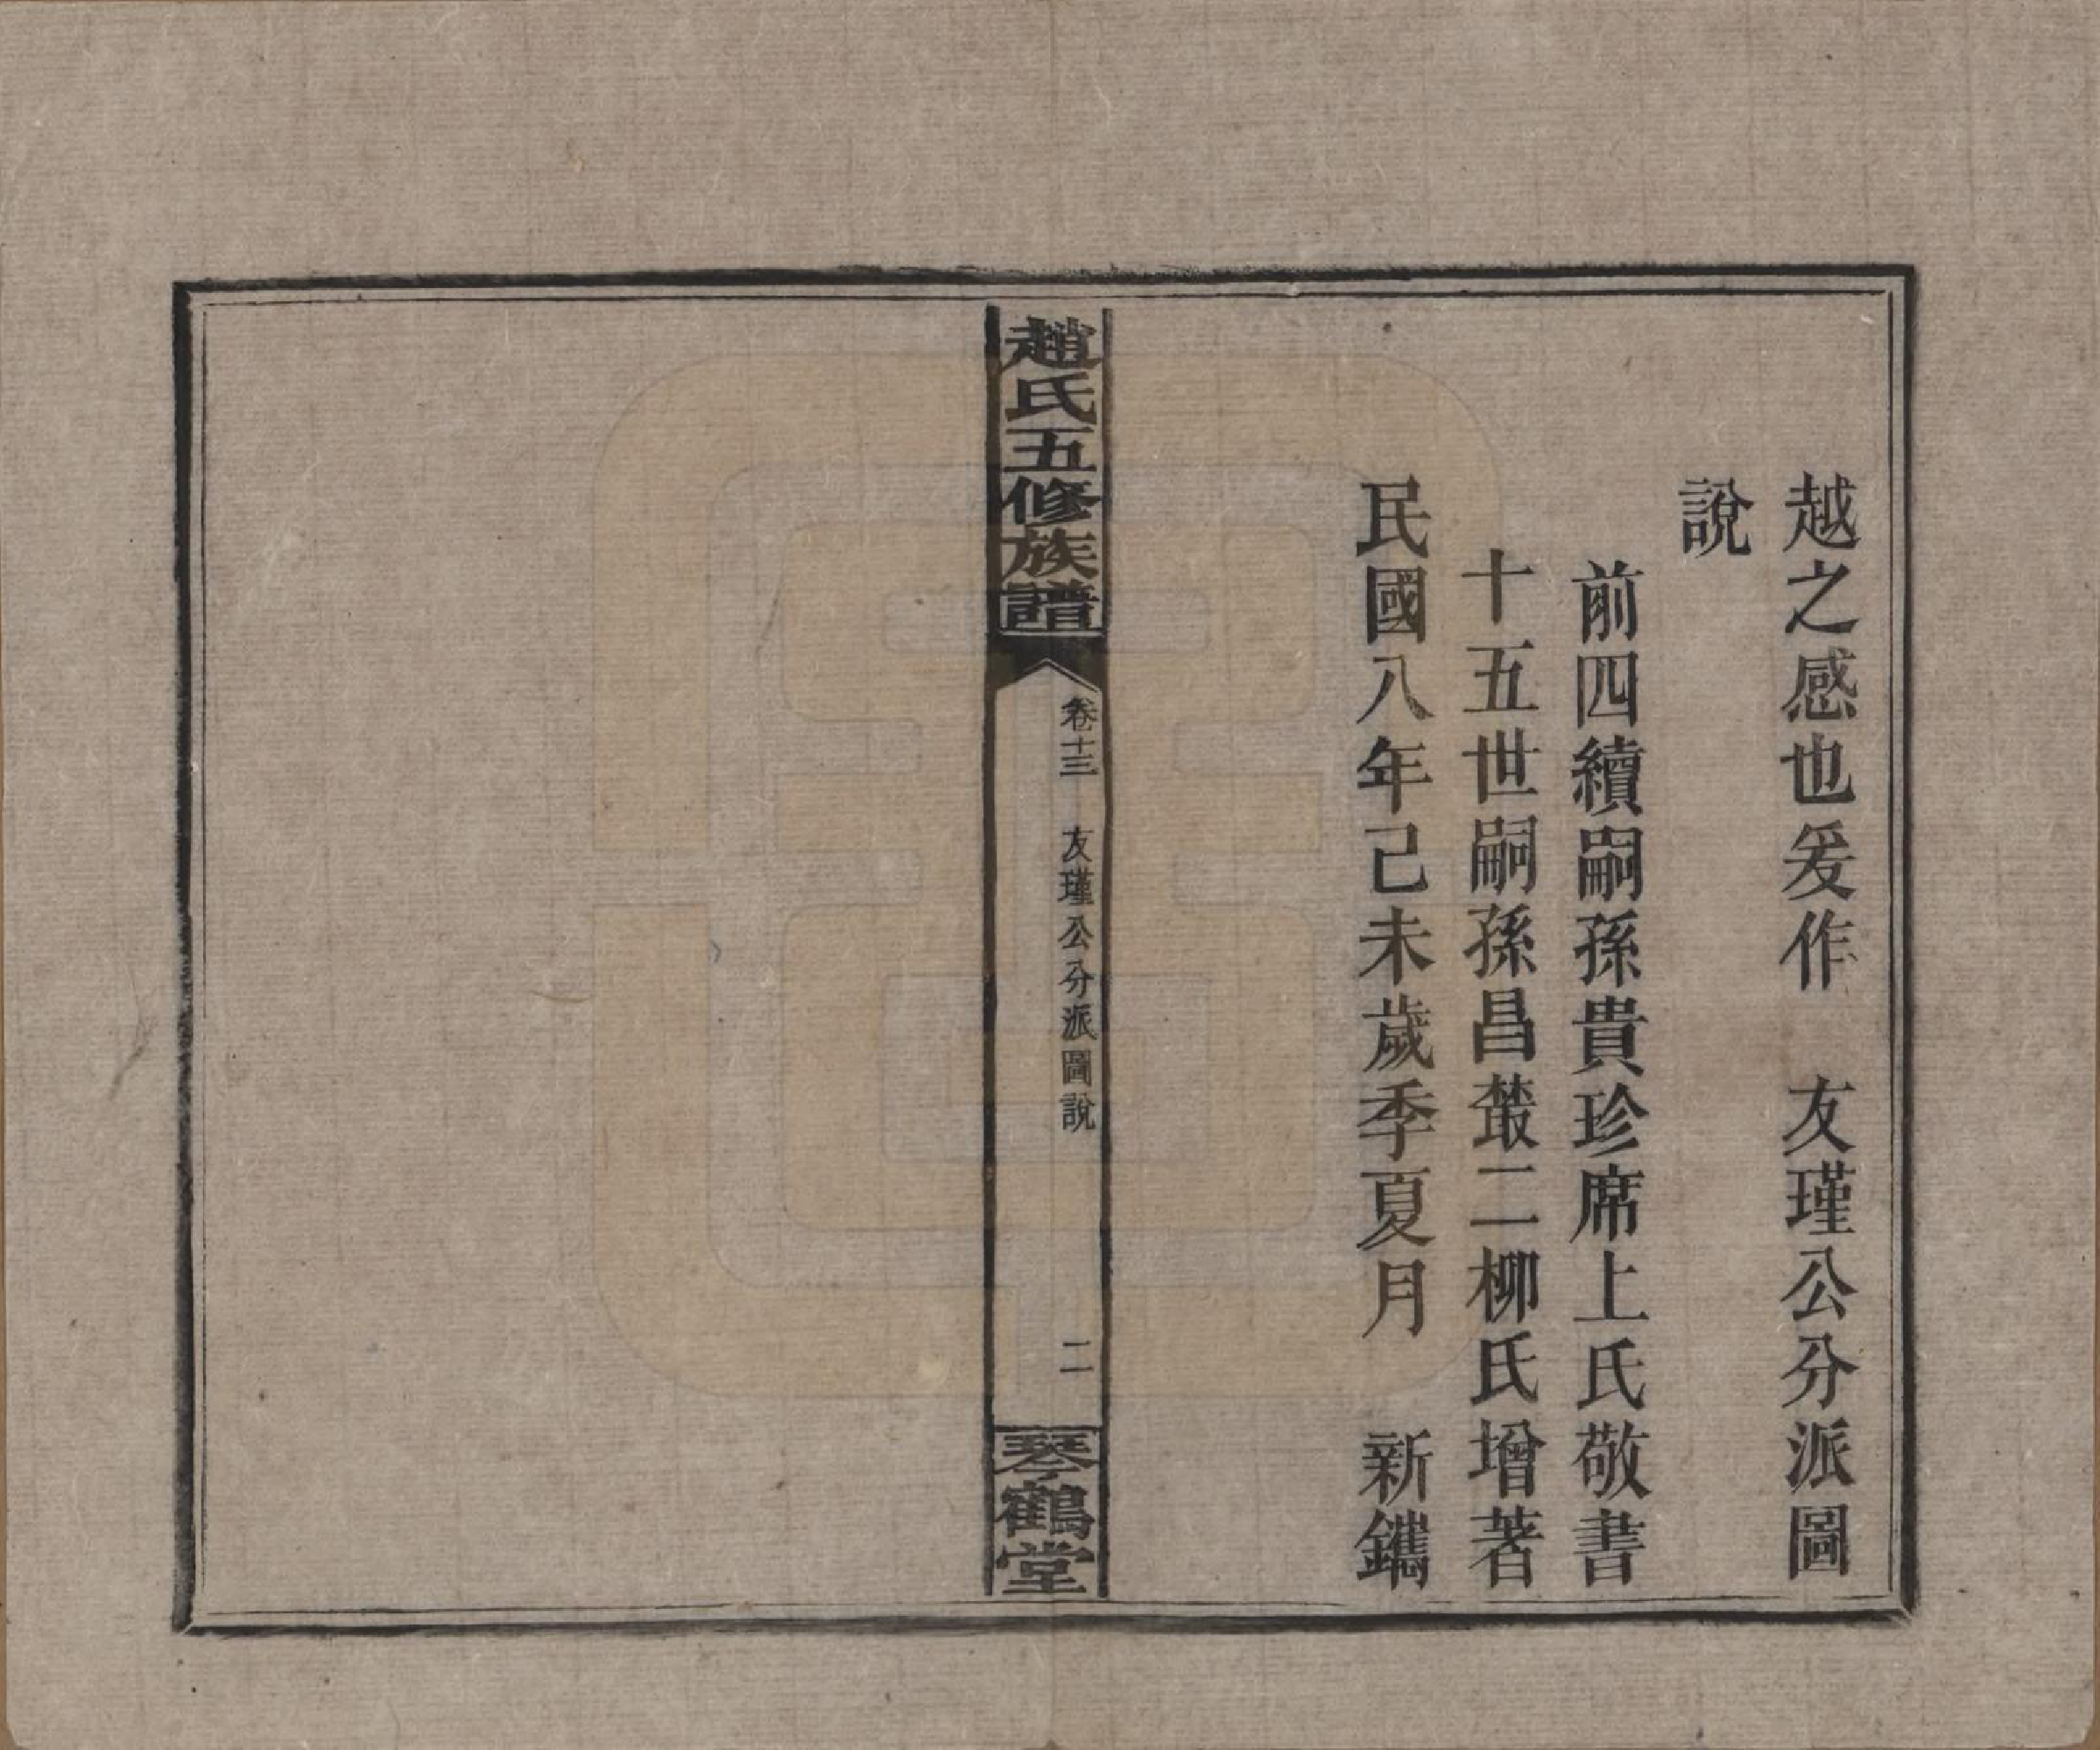 越之感也爰作　友瑾公分派圖
說
前四續嗣孫貴珍席上氏敬書
十五世嗣孫昌叢二柳氏增著
民國八年己未歲季夏月　新鐫
趙氏五修族譜
卷十三　友瑾公分派圖說
二
琴鶴堂